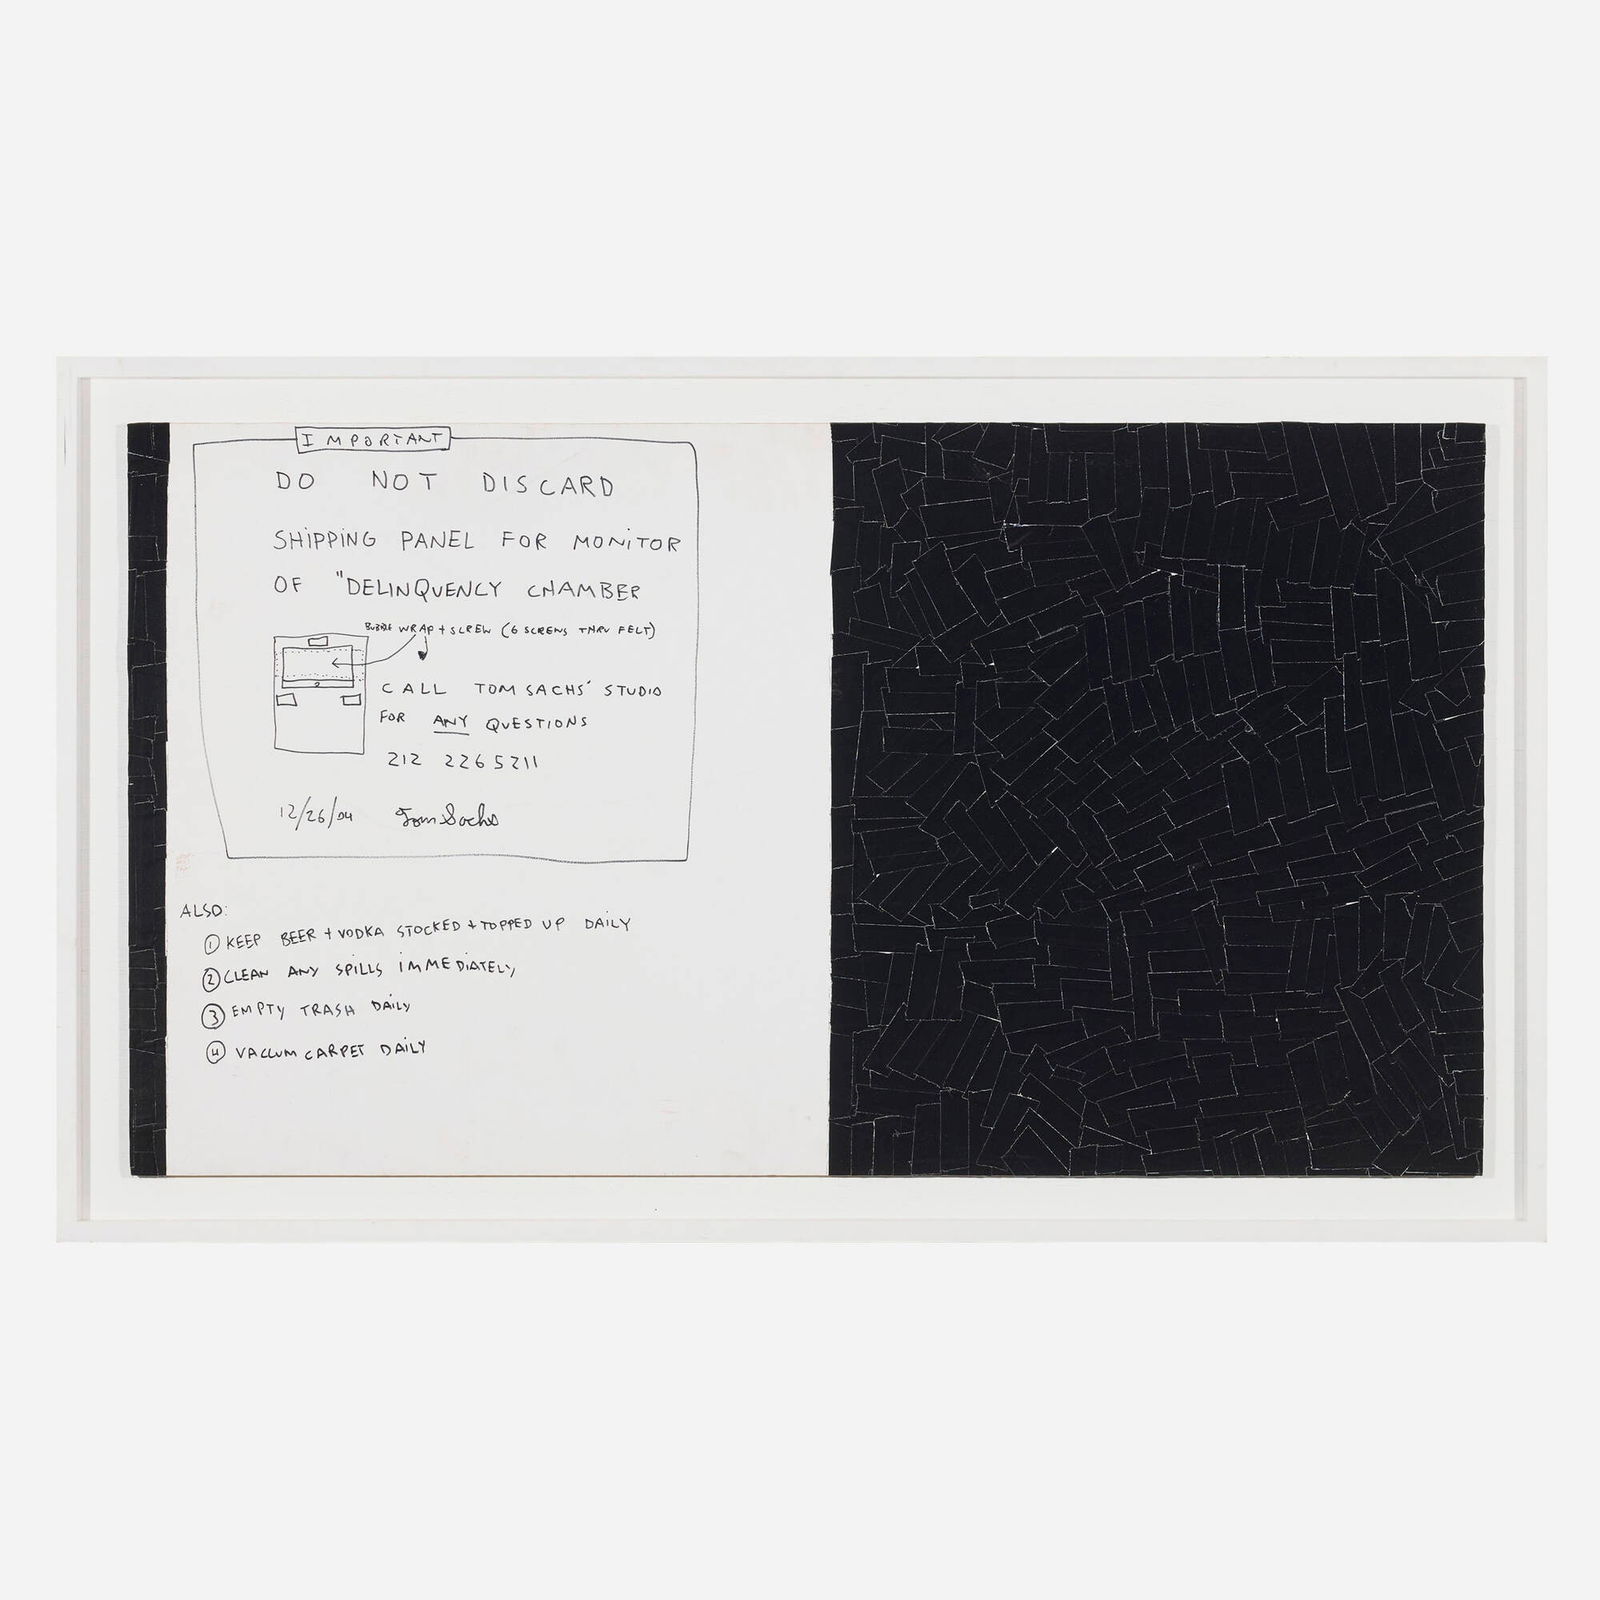 IMPORTANT
DO NOT DISCARD
SHIPPING PANEL FOR MONITOR
OF "DELINQUENCY CHAMBER
BUBBLE WRAP + SCREW (6 SCREWS THRU FELT)
CALL TOM SACHS' STUDIO
FOR ANY QUESTIONS
212 2265211
12/26/04 Tom Sachs
ALSO:
1 KEEP BEER + VODKA STOCKED + TOPPED UP DAILY
2 CLEAN ANY SPILLS IMMEDIATELY
3 EMPTY TRASH DAILY
4 VACUUM CARPET DAILY